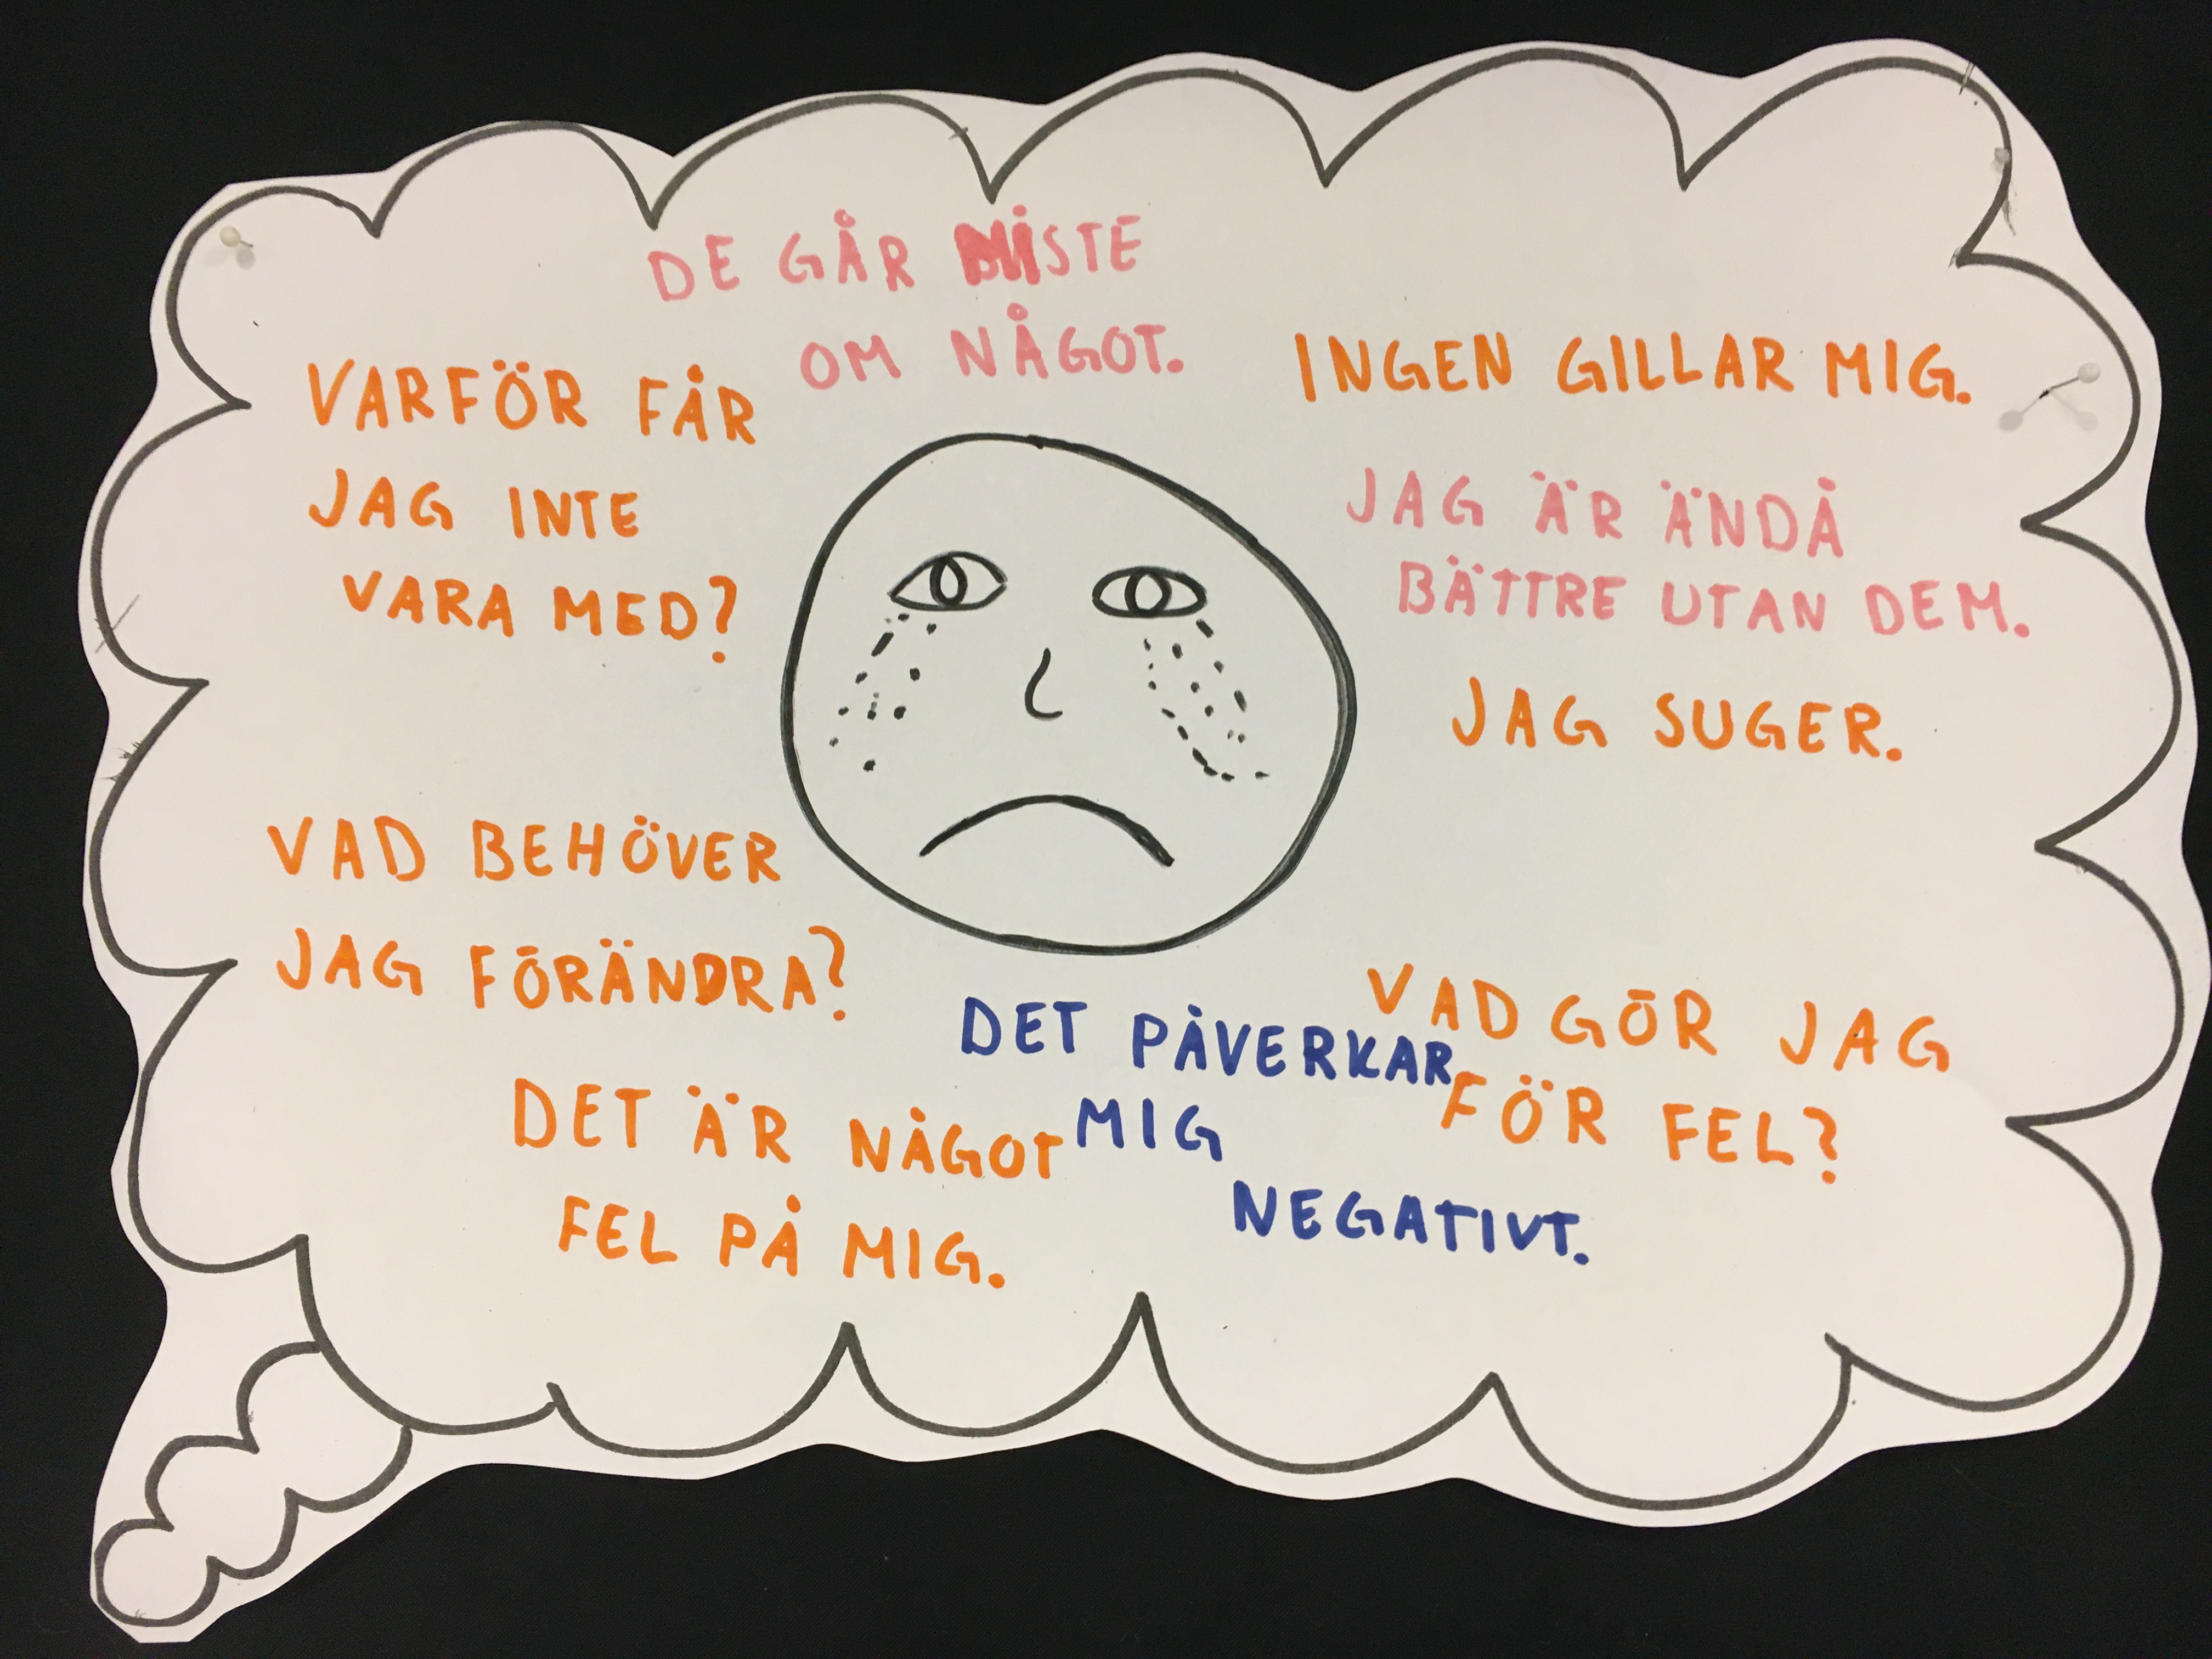 DE GÅR MISTE
OM NÅGOT.
VARFÖR FÅR
JAG INTE
VARA MED?
INGEN GILLAR MIG.
JAG ÄR ÄNDÅ
BÄTTRE UTAN DEM.
JAG SUGER.
VAD BEHÖVER
JAG FÖRÄNDRA?
DET PÅVERKAR
MIG
NEGATIVT.
VAD GÖR JAG
FÖR FEL?
DET ÄR NÅGOT
FEL PÅ MIG.